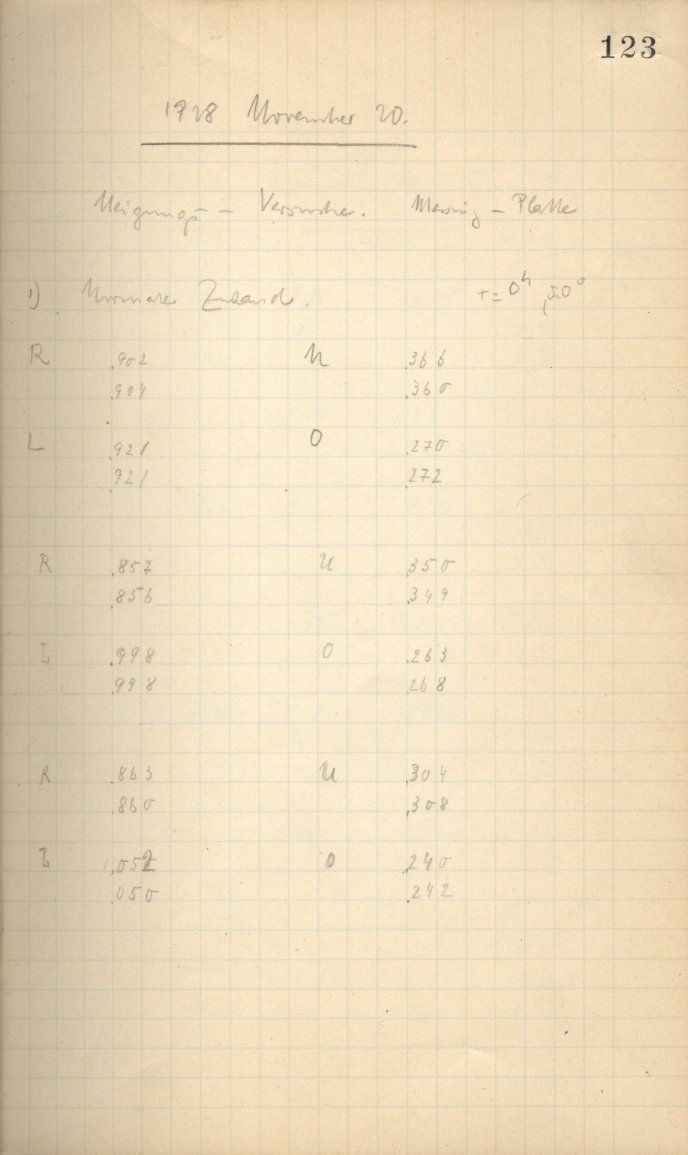 123
1928 November 20.
Neigungs - Versuche. Messing - Platte
1) Normaler Zustand. τ = 0ʰ, = 0°
R .902 U .366
.904 .360
L .921 O .270
.921 .272
R .857 U .350
.856 .349
L .998 O .263
.998 .268
R .863 U .304
.860 .308
L 1,052 O .240
.050 .242